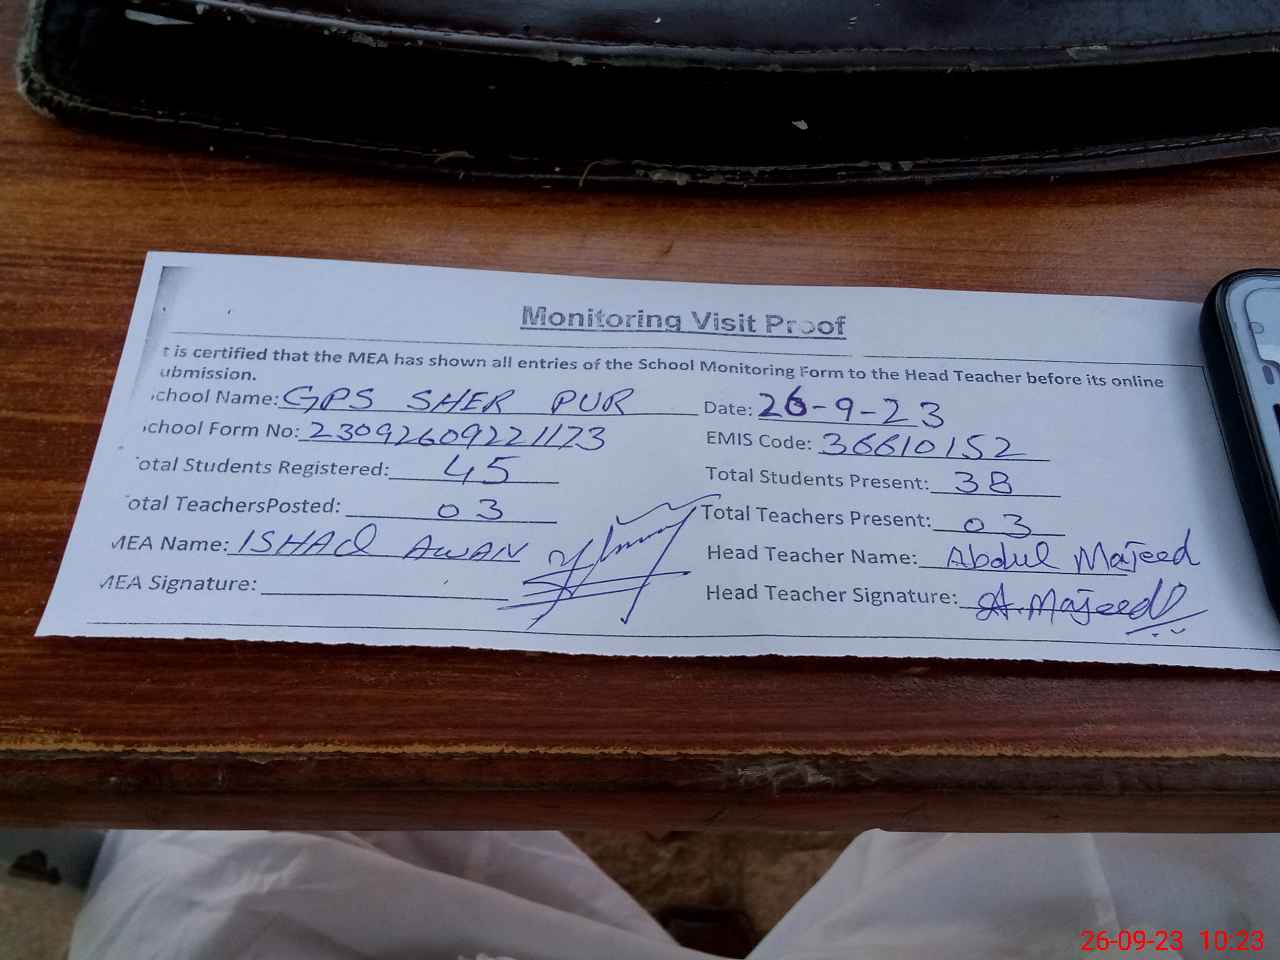 Monitoring Visit Proof
t is certified that the MEA has shown all entries of the School Monitoring Form to the Head Teacher before its online
ubmission.
chool Name: GPS SHER PUR Date: 26-9-23
chool Form No: 23092609221123 EMIS Code: 36610152
otal Students Registered: 45 Total Students Present: 38
otal TeachersPosted: 03 Total Teachers Present: 03
MEA Name: ISHAQ AWAN Head Teacher Name: Abdul Majeed
MEA Signature: Head Teacher Signature: A.Majeed
26-09-23 10:23